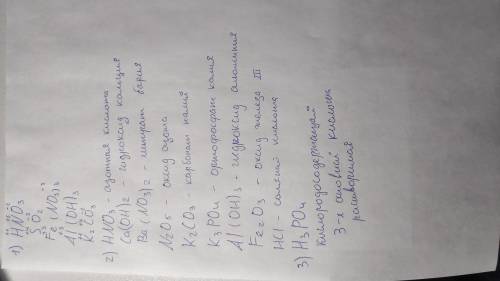 1) HNO3
SO2
Fe(NO3)3
Al(OH)3
K2CO3
2) HNO3 - азотная кислота
Ca(OH)2 - гидроксид кальция
Ba(NO3)2 - нитрат бария
N2O5 - оксид азота
K2CO3 - карбонат калия
K3PO4 - ортофосфат калия
Al(OH)3 - гидроксид алюминия
Fe2O3 - оксид железа III
HCl - соляная кислота
3) H3PO4
кислородосодержащая
3-х основная кислота
растворимая